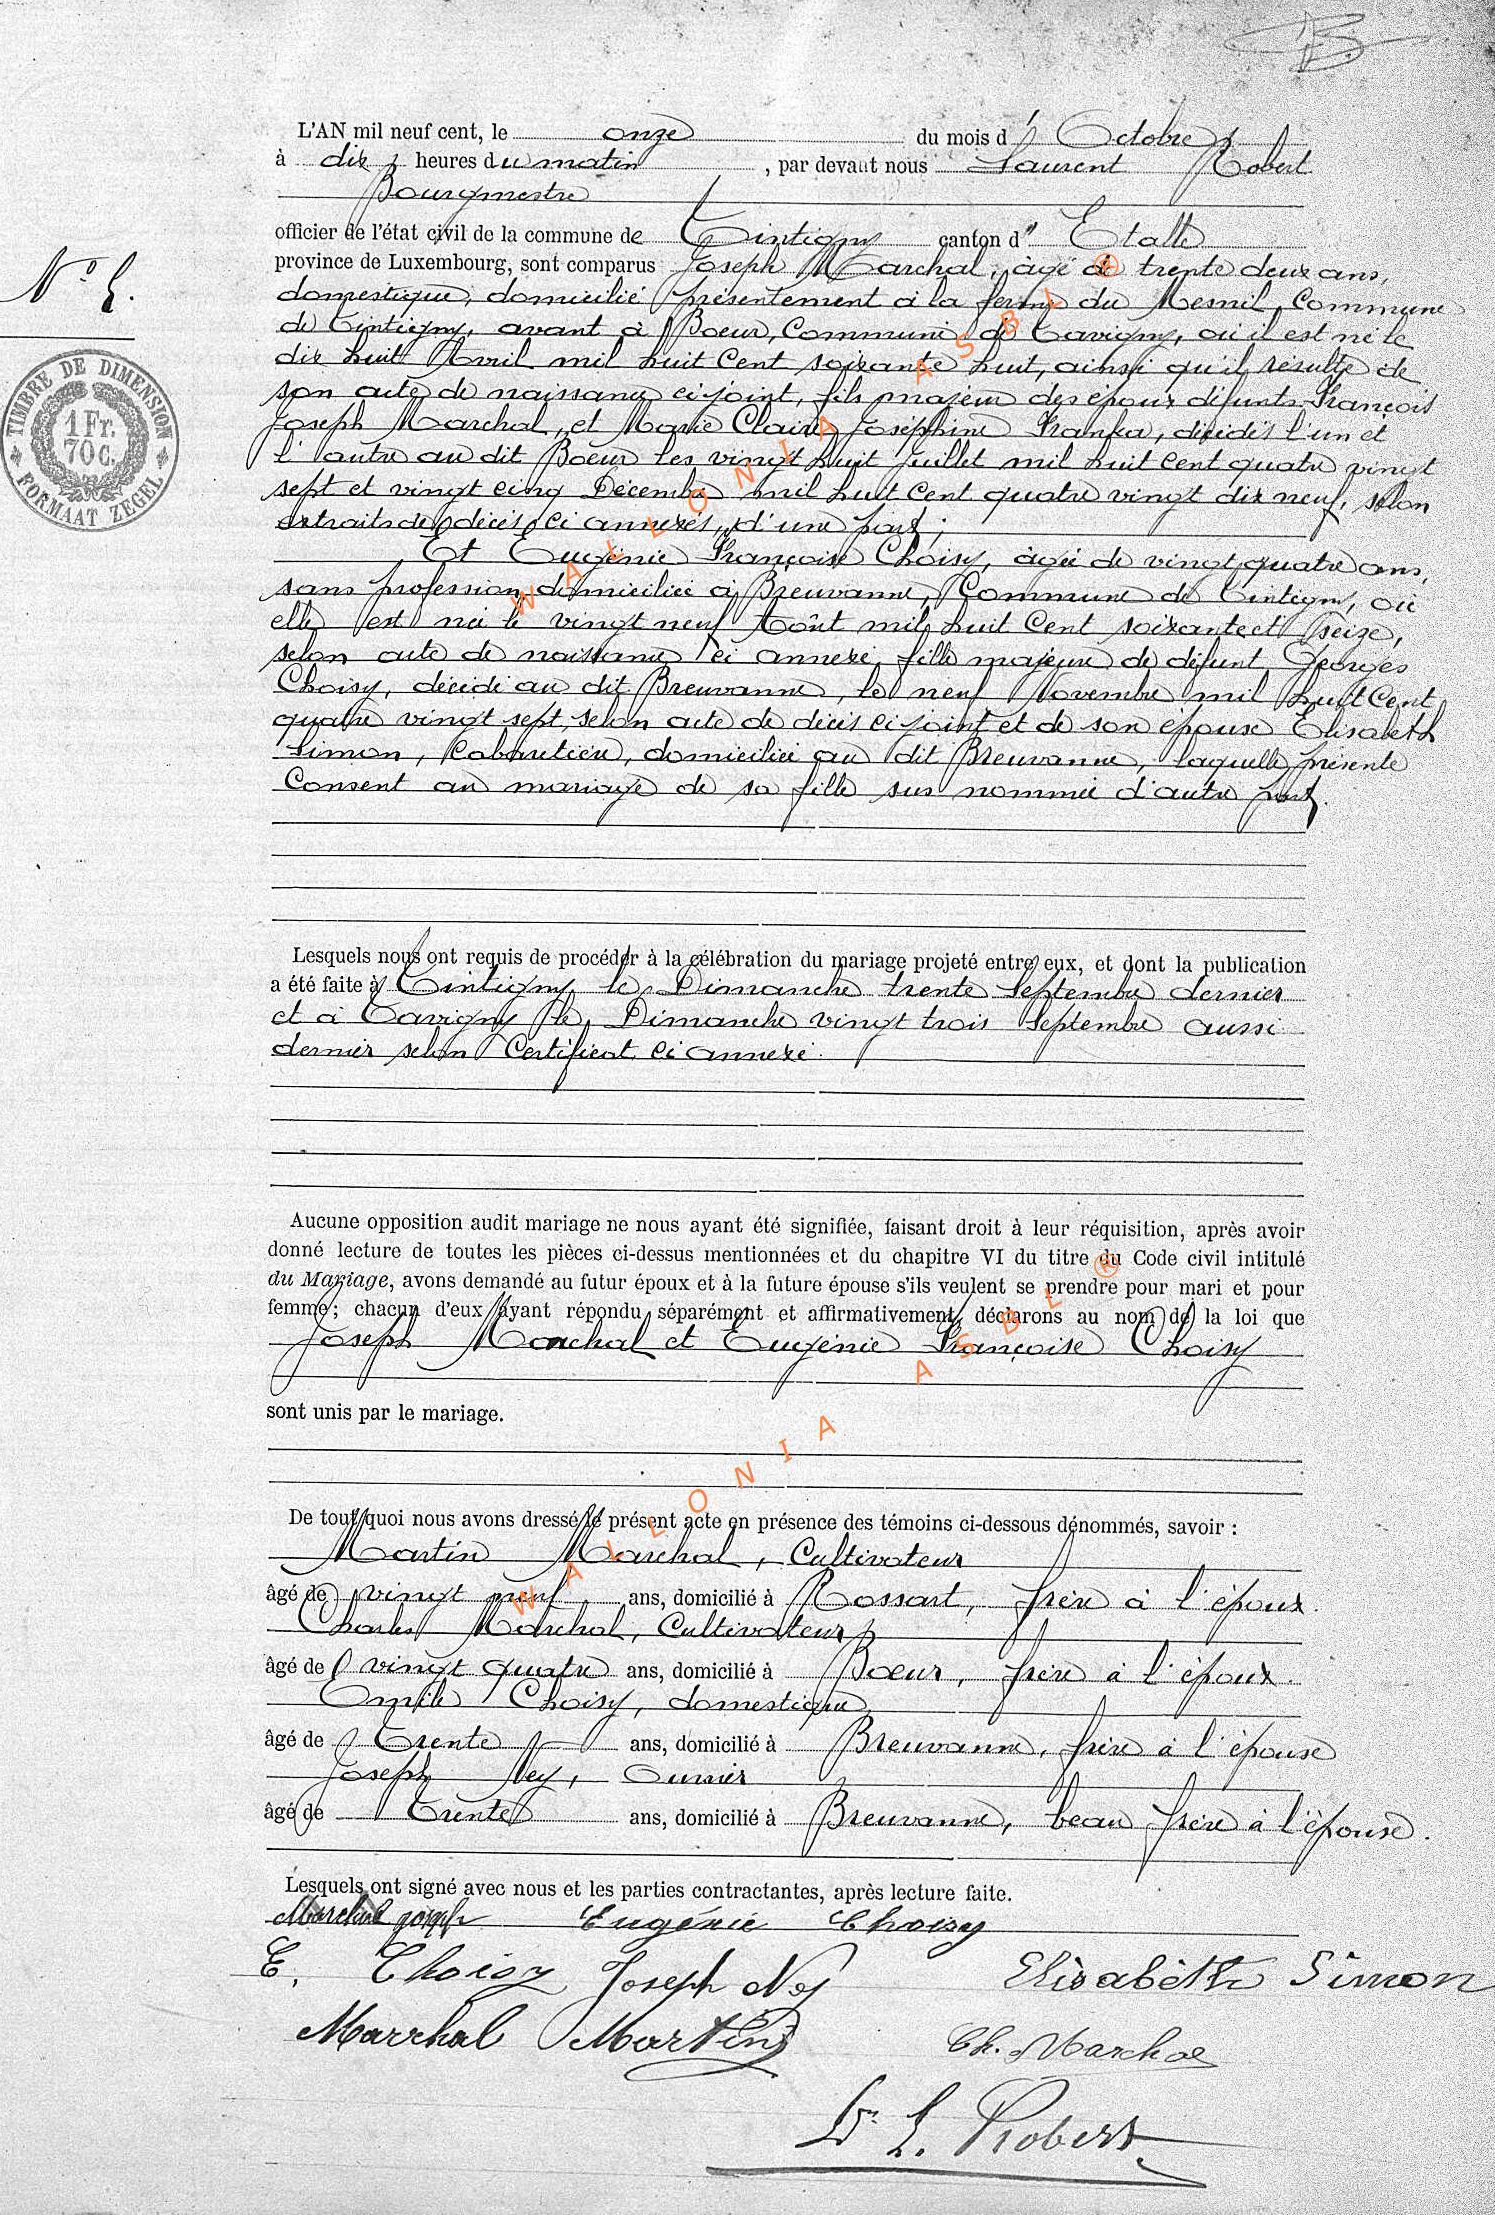 L'AN mil neuf cent, le onze du mois d' Octobre
à dix heures du matin, par devant nous Laurent Robert
Bourgmestre
officier de l'état civil de la commune de Tintigny canton d' Etalle
province de Luxembourg, sont comparus Joseph Marchal, âgé de trente deux ans,
domestique, domicilié présentement à la ferme du Mesnil, Commune
de Tintigny, avant à Boeur, Commune de Tavigny, où il est né le
dix huit Avril mil huit Cent soixante huit, ainsi qu'il résulte de
son acte de naissance ci joint, fils majeur des époux défunts François
Joseph Marchal, et Marie Claire Joséphine, décédés l'un et
l'autre au dit Boeur les vingt huit Juillet mil huit cent quatre vingt
sept et vingt cinq Décembre mil huit Cent quatre vingt dix neuf, selon
extraits de décès ci annexés, d'une part;
Et Eugénie Françoise Choisy, âgée de vingt quatre ans,
sans profession, domiciliée à Breuvanne, Commune de Tintigny, où
elle est née le vingt neuf Août mil huit Cent soixante et seize,
selon acte de naissance ci annexé, fille majeure de défunt Georges
Choisy, décédé au dit Breuvanne, le neuf Novembre mil huit Cent
quatre vingt sept, selon acte de décès ci joint et de son épouse Elisabeth
Simon, Cabaretière, domiciliée au dit Breuvanne, laquelle présente
Consent au mariage de sa fille sus nommée d'autre part.
N° 5.
TIMBRE DE DIMENSION
1 Fr.
70 C.
FORMAAT ZEGEL
Lesquels nous ont requis de procéder à la célébration du mariage projeté entre eux, et dont la publication
a été faite à Tintigny le Dimanche trente Septembre dernier
et à Tavigny le Dimanche vingt trois Septembre aussi
dernier selon Certificat ci annexé.
Aucune opposition audit mariage ne nous ayant été signifiée, faisant droit à leur réquisition, après avoir
donné lecture de toutes les pièces ci-dessus mentionnées et du chapitre VI du titre du Code civil intitulé
du Mariage, avons demandé au futur époux et à la future épouse s'ils veulent se prendre pour mari et pour
femme; chacun d'eux ayant répondu séparément et affirmativement, déclarons au nom de la loi que
Joseph Marchal et Eugénie Françoise Choisy
sont unis par le mariage.
De tout quoi nous avons dressé le présent acte en présence des témoins ci-dessous dénommés, savoir :
Martin Marchal, Cultivateur
âgé de vingt neuf ans, domicilié à Rossart, frère à l'époux.
Charles Marchal, Cultivateur
âgé de vingt quatre ans, domicilié à Boeur, frère à l'époux
Emile Choisy, domestique
âgé de Trente ans, domicilié à Breuvanne, frère à l'épouse
Joseph Ney, Ouvrier
âgé de Trente ans, domicilié à Breuvanne, beau frère à l'épouse.
Lesquels ont signé avec nous et les parties contractantes, après lecture faite.
Marchal Joseph Eugénie Choisy
E. Choisy Joseph Ney Elisabeth Simon
Marchal Martin Ch. Marchal
L. Robert
WALLONIA ASBL ®
WALLONIA ASBL ®